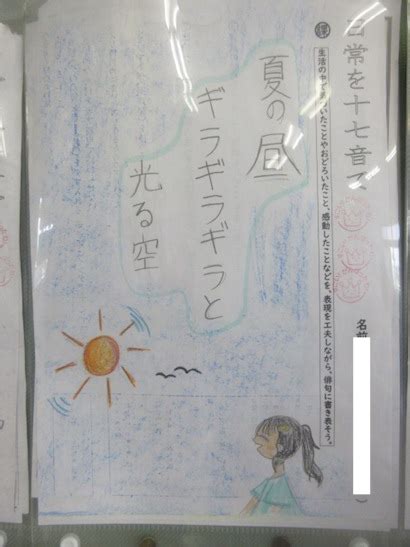 日常を十七音で
課 生活の中で気づいたことやおどろいたこと、感動したことなどを、表現を工夫しながら、俳句に書き表そう。
名前
夏の昼
ギラギラギラと
光る空